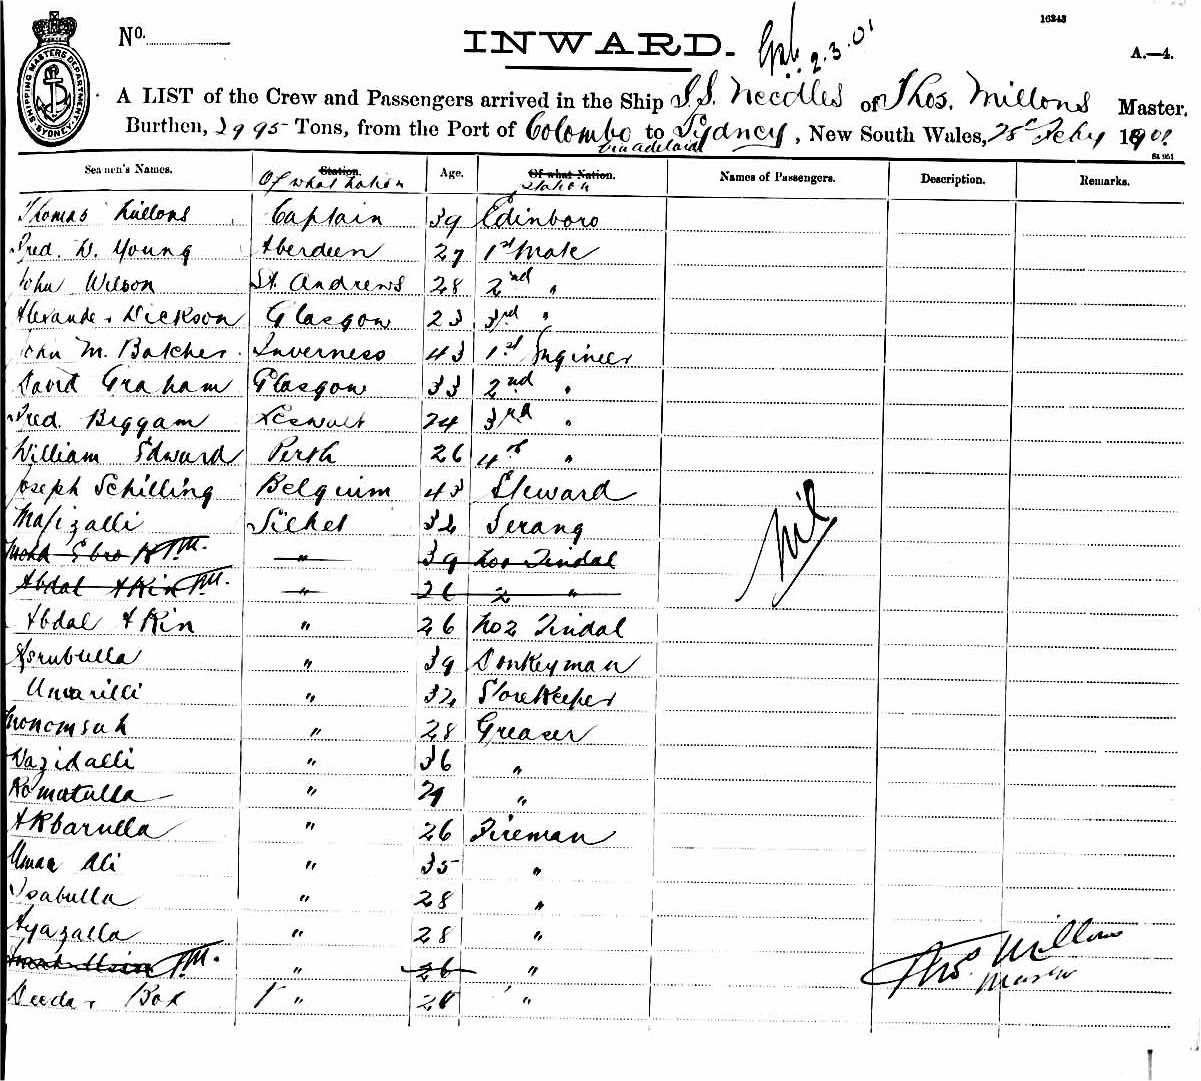 16243
No.
INWARD.
2.3.01
A.—4.
SHIPPING MASTERS DEPARTMENT SYDNEY
A LIST of the Crew and Passengers arrived in the Ship S.S. Needles of Thos. Millons Master,
Burthen, 2995 Tons, from the Port of Colombo to Sydney, New South Wales, 28 Feby 1901
via adelaide
Seamen's Names. Station. Age. Of what Nation. Names of Passengers. Description. Remarks.
Of what nation Station
Thomas Millons Captain 39 Edinboro
Fred. W. Young Aberdeen 27 1st Mate
John Wilson St. Andrews 28 2nd "
Alexander Dickson Glasgow 23 3rd "
John M. Batcher Inverness 43 1st Engineer
David Graham Glasgow 33 2nd "
Fred. Biggam Leswalt 24 3rd "
William Edward Perth 26 4th "
Joseph Schilling Belguim 43 Steward
Mafizalli Silhet 32 Serang
" 39 No1 Tindal
Abdal AKin T.M. " 26 2 "
Abdal AKin " 26 No2 Tindal
Asrubulla " 39 Donkeyman
Unwarilli " 32 StoreKeeper
Monomsah " 28 Greaser
Wazidalli " 36 "
Komatulla " 29 "
AKbarulla " 26 Fireman
Umaa Ali " 35 "
Isabulla " 28 "
Ayazalla " 28 "
T.M. " 26 "
Deedar Box " 28 "
Nil
Thos Millons
Master